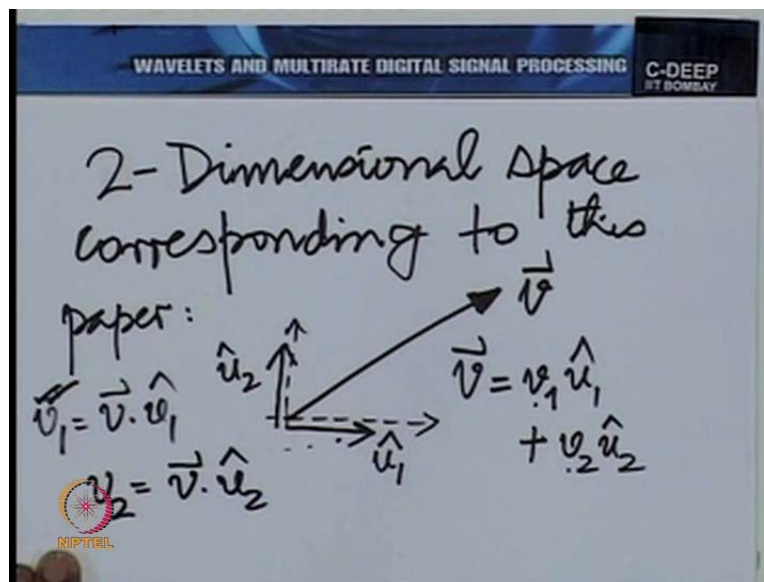 WAVELETS AND MULTIRATE DIGITAL SIGNAL PROCESSING
C-DEEP
IIT BOMBAY
2-Dimensional space
corresponding to this
paper:
v⃗
û₂
v⃗ = v₁û₁
+ v₂û₂
v₁ = v⃗·v̂₁
û₁
v₂ = v⃗·û₂
NPTEL